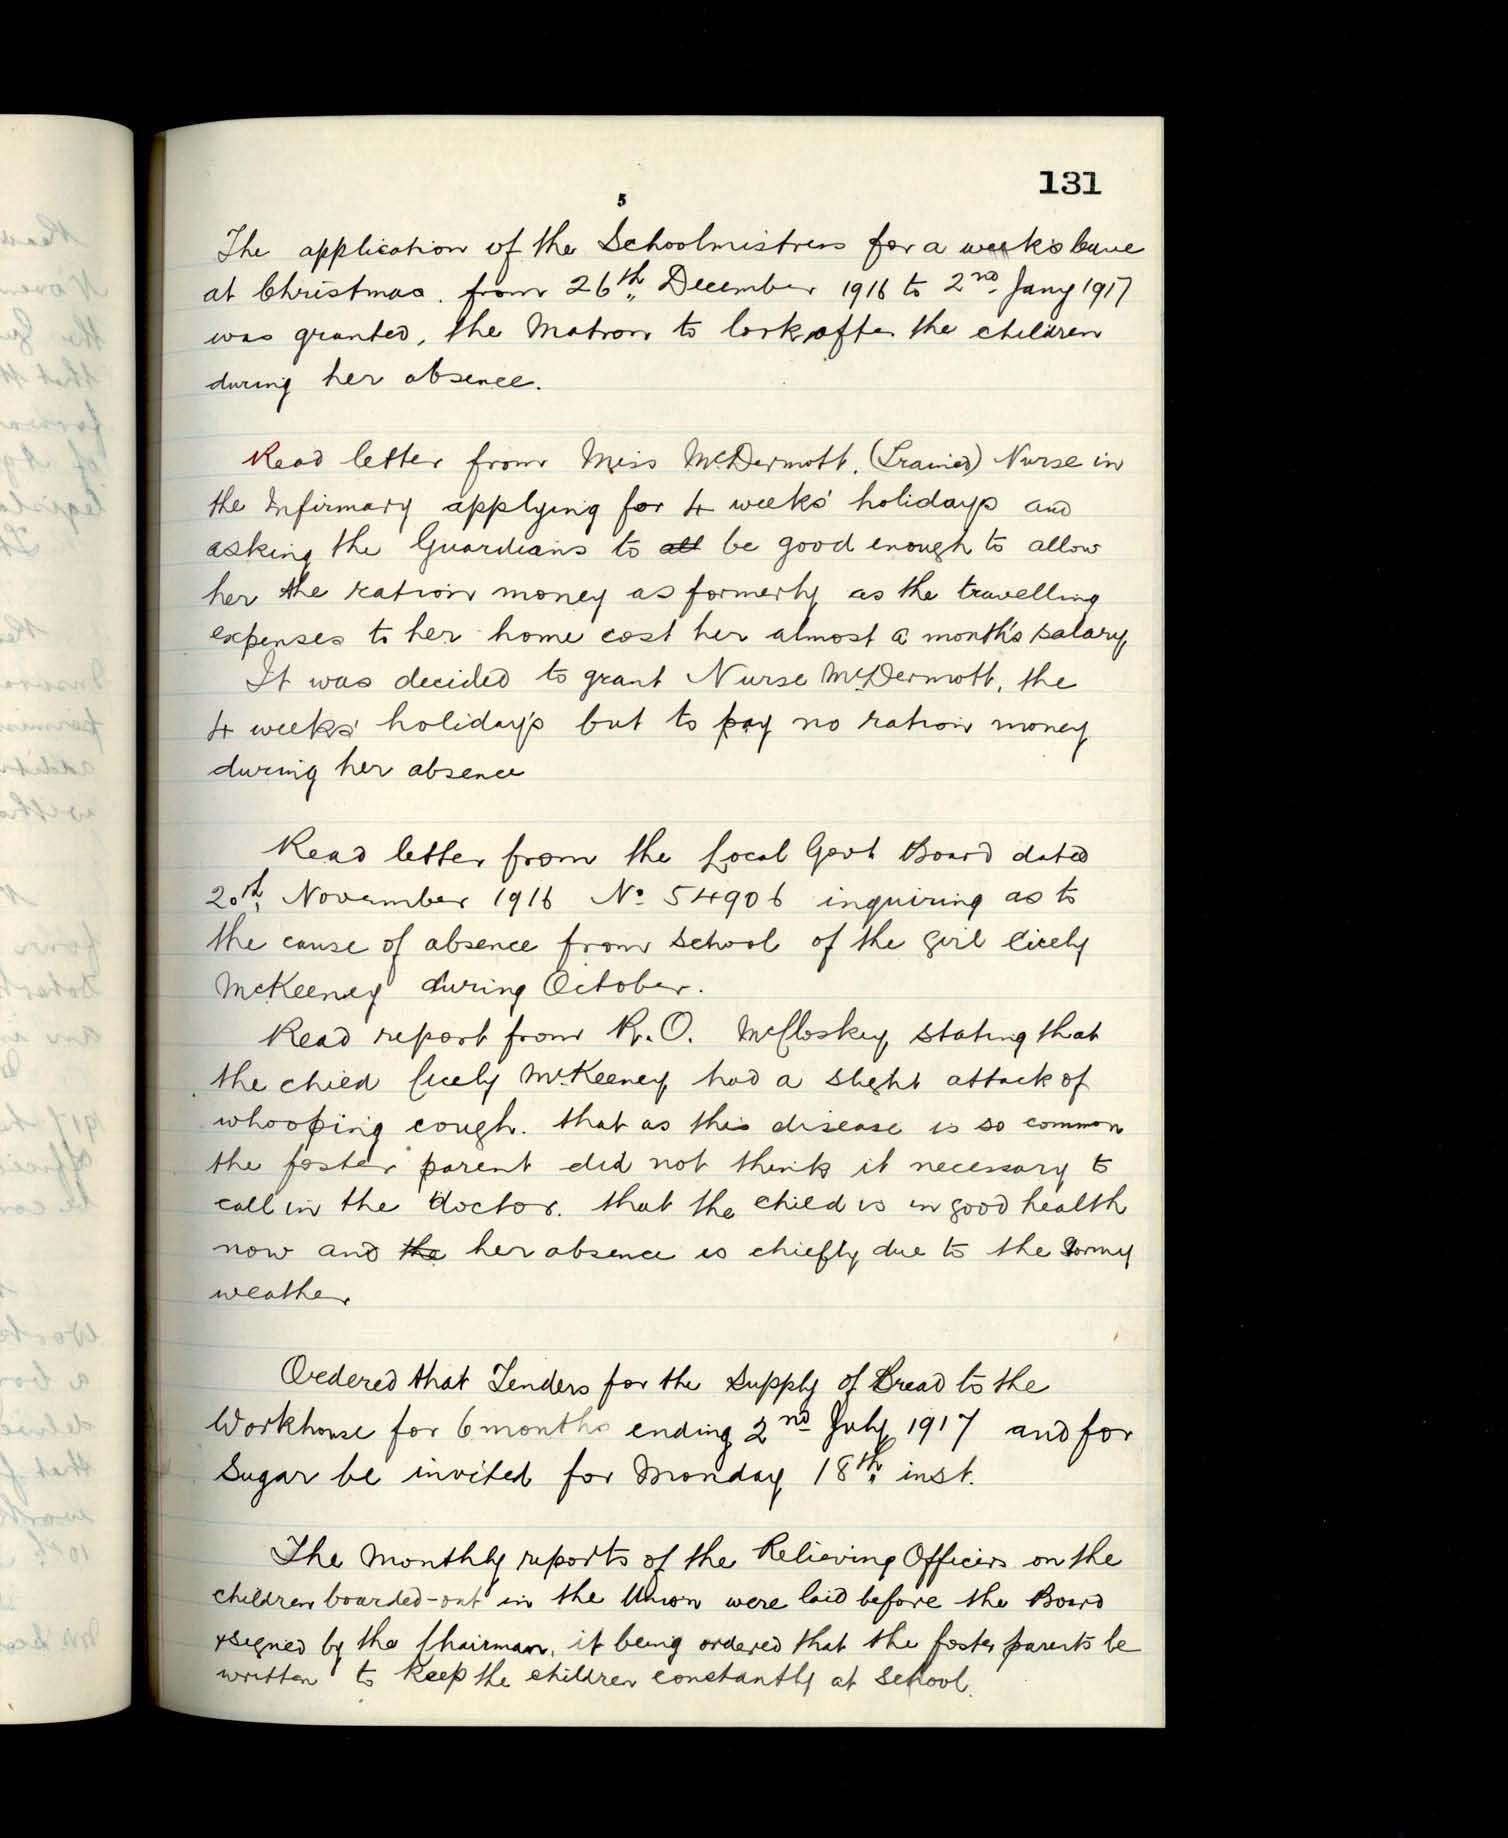 131
5
The application of the Schoolmistress for a week's leave
at Christmas. from 26th December 1916 to 2nd Jany 1917
was granted, the Matron to look after the children
during her absence.
Read letter from Miss McDermott. (Trained) Nurse in
the Infirmary applying for 4 weeks' holidays and
asking the Guardians to all be good enough to allow
her the ration money as formerly as the travelling
expenses to her home cost her almost a month's salary
It was decided to grant Nurse McDermott, the
4 weeks' holidays but to pay no ration money
during her absence
Read letter from the Local Govt Board dated
20th November 1916 No. 54906 inquiring as to
the cause of absence from School of the girl Cicely
McKeeney during October.
Read report from R.O. McCloskey, stating that
the child Cicely McKeeney had a slight attack of
whooping cough. that as this disease is so common
the foster parent did not think it necessary to
call in the doctor. that the child is in good health
now and the her absence is chiefly due to the stormy
weather
Ordered that Tenders for the supply of Bread to the
Workhouse for 6 months ending 2nd July 1917 and for
Sugar be invited for Monday 18th inst.
The Monthly reports of the Relieving Officers on the
children boarded-out in the Union were laid before the Board
& signed by the Chairman, it being ordered that the foster parents be
written to keep the children constantly at School.